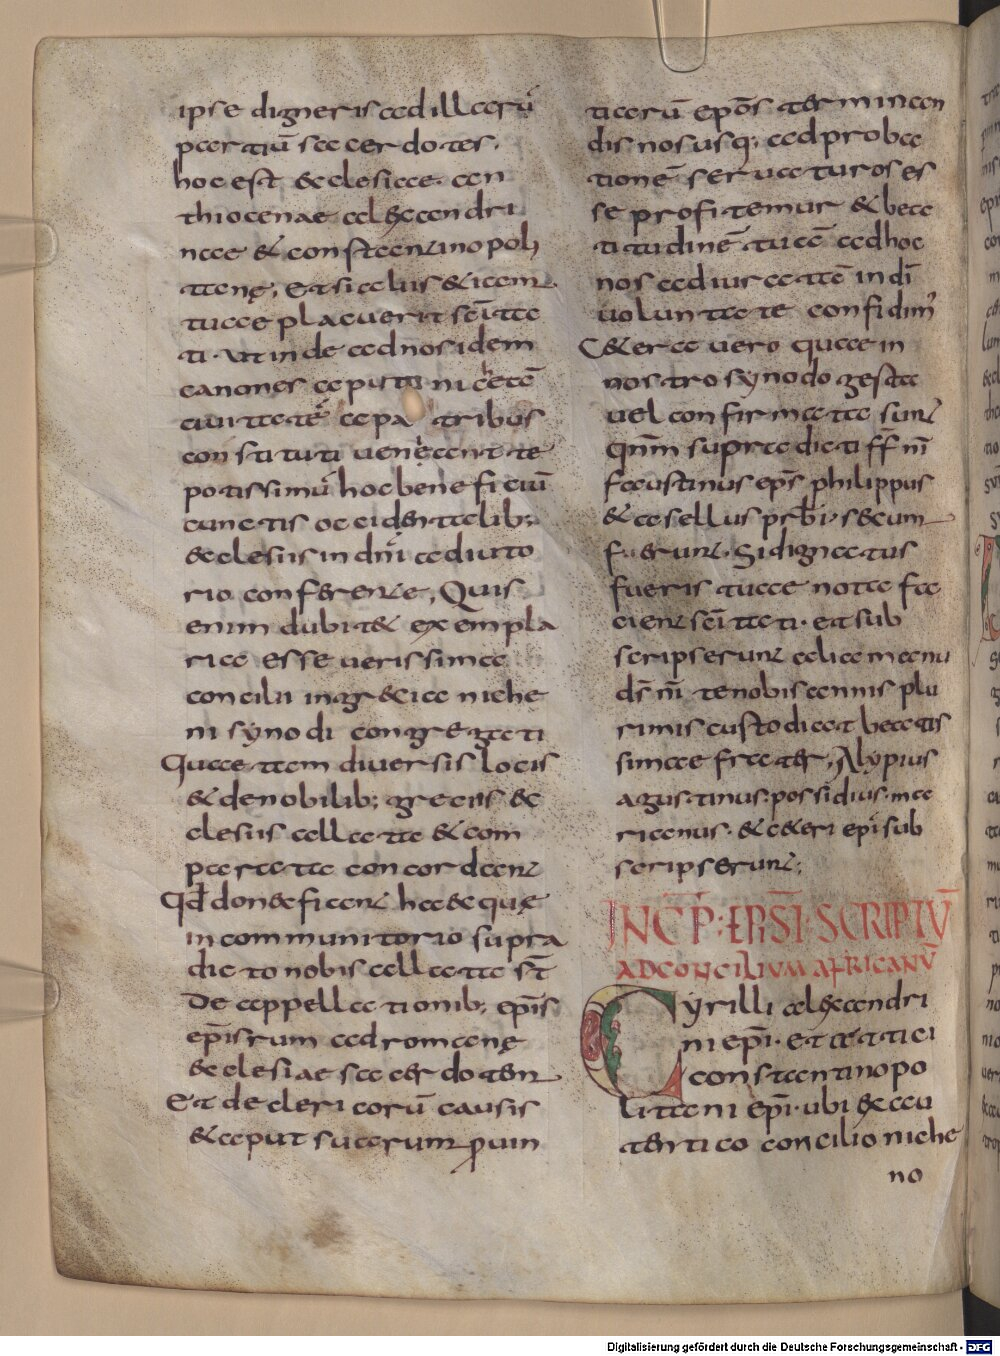 ipse digneris ad illarū
partiū sacerdotes.
hoc est & clesiae. an
thiocenae alexandri
nae & constantinopoli
tenę, et si aliis & iam
tuae placuerit sc̄ita
ti. ut inde ad nos idem
canones aput niceā
ciuitatē a patribus
constituti ueniant te
potissimū hoc beneficiū
cunctis occidentalib;
&clesiis in dn̄i adiuto
rio conferente, Quis
enim dubit& exempla
ria esse uerissima
concilii in gr&cia niche
ni synodi congregati
Quae tam diuersis locis
& de nobilib; grecis &
clesiis allata & com
parata concordant
Qd̄ don& fiant hae& quę
in communitorio supra
dicto nobis allata st̄
De appellationib; ep̄is
ep̄isrum ad romanę
&clesiae sacerdotem
Et de clericorū causis
& aput suarum puin
ticarū ep̄os terminan
dis nos usq; ad proba
tionē seruaturos es
se profitemur & bea
titudinē tuā ad hoc
nos adiuuatā in dī
uoluntate confidim'
C&era uero quae in
nostro synodo gesta
uel confirmata sunt
qn̄m supradicti ff̄ nī
faustinus ep̄s philippus
& asellus prb̄i. secum
f&erunt. Si dignatus
fueris tuae nota fa
cient sc̄itati. et sub
scripserunt alia manu
dς̄ nī te nobis annis plu
rimis custodiat beatis
sime frater, Alypius
agustinus. possidius. ma
rianus. & c&eri ep̄i sub
scripserunt;
INCP̄: EPISI SCRIPTŪ
AD CONCILIVM AFRICANŪ
Cyrilli alexandri
ni ep̄i. et attici
constantinopo
litani ep̄i. ubi exau
tentico concilio niche
no
Digitalisierung gefördert durch die Deutsche Forschungsgemeinschaft - DFG